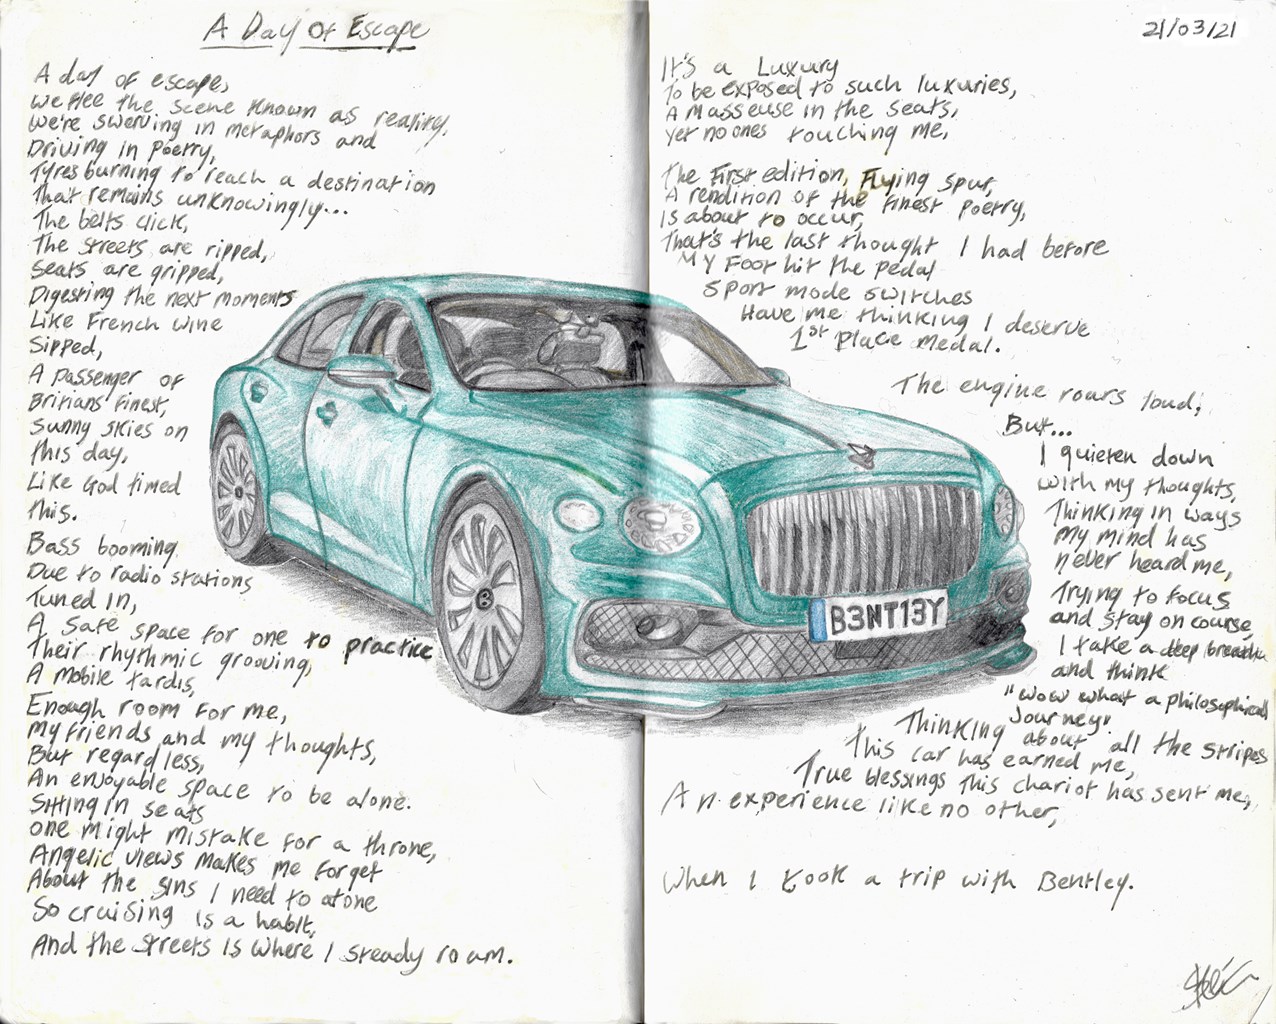 A Day Of Escape
A day of escape,
We flee the scene known as reality,
We're swerving in metaphors and
Driving in Poetry,
Tyres burning to reach a destination
That remains unknowingly...
The belts click,
The streets are ripped,
Seats are gripped,
Digesting the next moments
Like French wine
Sipped,
A passenger of
Britians finest,
Sunny skies on
this day,
Like God timed
this.
Bass booming
Due to radio stations
Tuned in,
A safe space for one to practice
Their rhythmic grooving,
A mobile tardis,
Enough room for me,
My friends and my thoughts,
But regardless,
An enjoyable space to be alone.
Sitting in seats
one might mistake for a throne,
Angelic views makes me forget
About the sins I need to atone
So cruising is a habit,
And the streets is where I steady roam.
21/03/21
It's a Luxury
To be exposed to such luxuries,
A Masseuse in the seats,
Yet no ones touching me,
The First edition, Flying spur,
A rendition of the finest poetry,
Is about to occur,
That's the last thought I had before
My Foot hit the pedal
Sport mode switches
Have me thinking I deserve
1st place medal.
The engine roars loud,
But...
I quieten down
with my thoughts,
Thinking in ways
My mind has
never heard me,
Trying to focus
and stay on course,
I take a deep breath
and think
"wow what a philosophical
Journey"
Thinking about all the stripes
This car has earned me,
True blessings this chariot has sent me,
An experience like no other,
When I took a trip with Bentley.
B3NT13Y
B